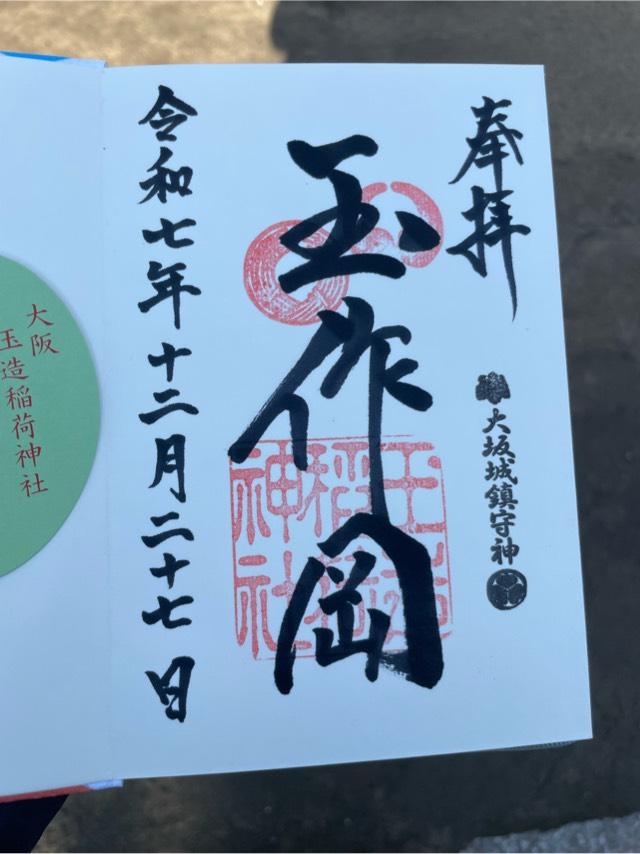 奉拝
大坂城鎮守神
玉作岡
玉造
稲荷
神社
令和七年十二月二十七日
大阪
玉造稲荷神社